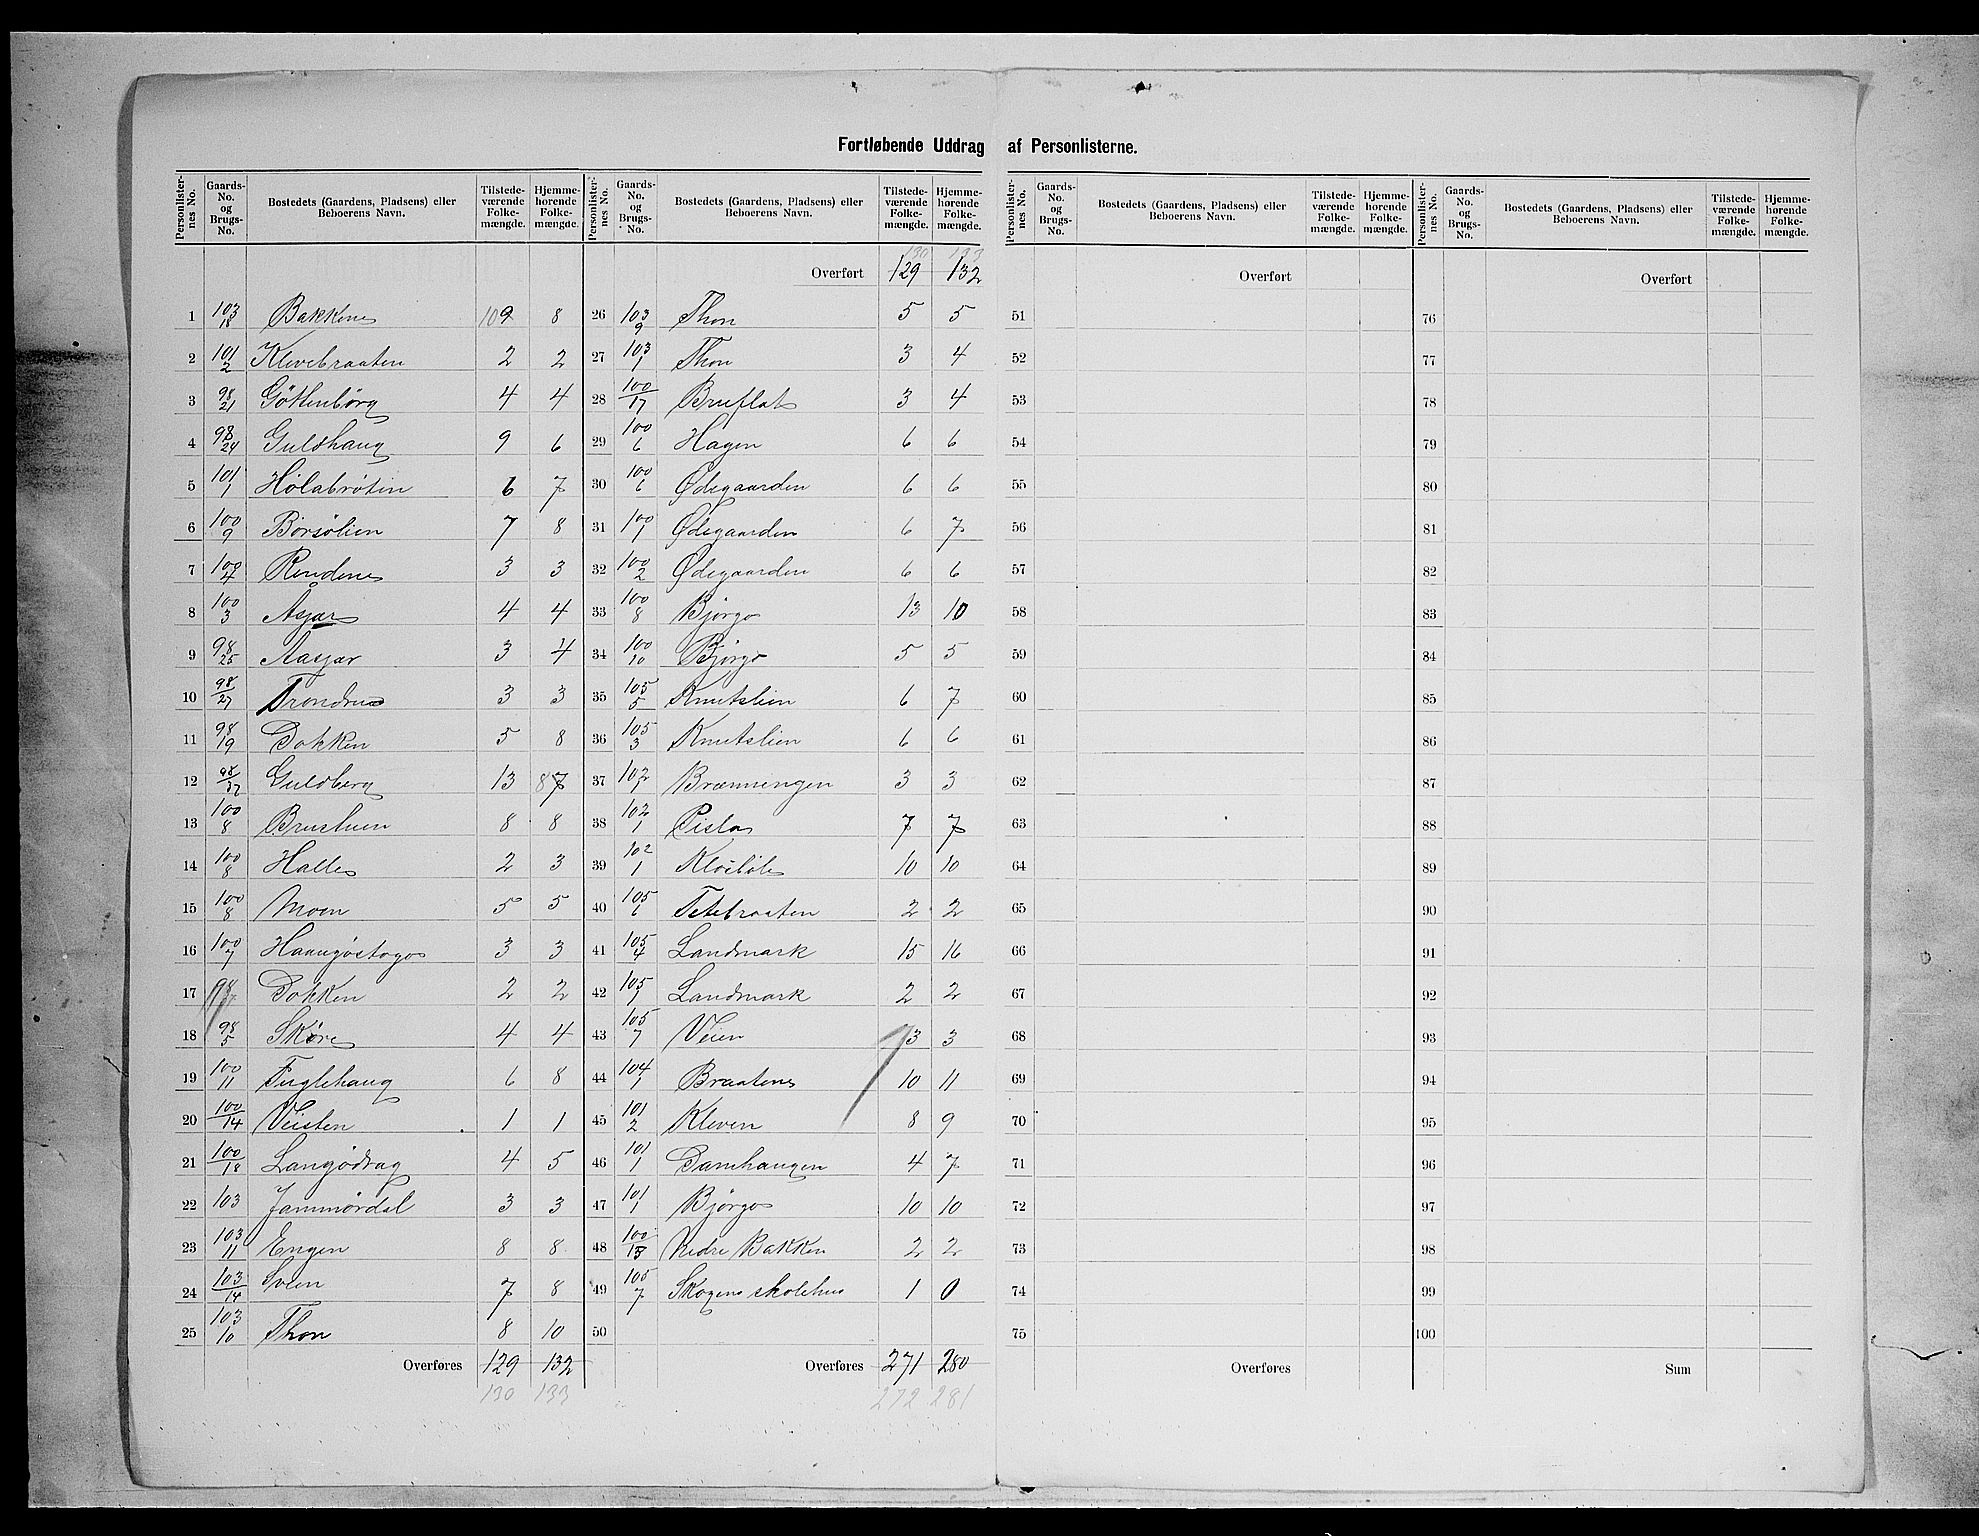 Fortløbende Uddrag af Personlisterne.
Personlister-nes No. | Gaards-No. og Brugs-No. | Bostedets (Gaardens, Pladsens) eller Beboerens Navn. | Tilstede-værende Folke-mængde. | Hjemme-hørende Folke-mængde.
1 103/18 Bakkene 109 8
2 101/2 Klevebraaten 2 2
3 98/21 Göttenbörg 4 4
4 98/24 Guldhaug 9 6
5 101/1 Hølabrøtin 6 7
6 100/9 Börsölien 7 8
7 100/4 Rendene 3 3
8 100/3 Asjar 4 4
9 98/25 Aasjar 3 4
10 98/27 Trondrud 3 3
11 98/19 Dokken 5 8
12 98/37 Guldberg 13 87
13 100/8 Brustuen 8 8
14 100/8 Halle 2 3
15 100/8 Moen 5 5
16 100/7 Haaugøstogo 3 3
17 98 Dokken 2 2
18 98/5 Sköre 4 4
19 100/11 Fuglehaug 6 8
20 100/14 Veisten 1 1
21 100/18 Langödrag 4 5
22 103 Jammördal 3 3
23 103/11 Engen 8 8
24 103/14 Sveen 7 8
25 103/10 Thon 8 10
Overføres 129 132
130 133
Personlister-nes No. | Gaards-No. og Brugs-No. | Bostedets (Gaardens, Pladsens) eller Beboerens Navn. | Tilstede-værende Folke-mængde. | Hjemme-hørende Folke-mængde.
130 133
Overført 129 132
26 103/9 Thon 5 5
27 103/1 Thon 3 4
28 100/17 Bruflat 3 4
29 100/6 Hagen 6 6
30 100/6 Ødegaarden 6 6
31 100/1 Ødegaarden 6 7
32 100/2 Ødegaarden 6 6
33 100/8 Bjørgo 13 10
34 100/10 Bjørgo 5 5
35 105/5 Knutslien 6 7
36 105/3 Knutslien 6 6
37 102/1 Brænnengen 3 3
38 102/1 Pisla 7 7
39 102/1 Kløiböle 10 10
40 105/6 Tetebraaten 2 2
41 105/4 Landmark 15 16
42 105/1 Landmark 2 2
43 105/7 Veien 3 3
44 104/1 Braatene 10 11
45 101/2 Kleven 8 9
46 101/1 Damhaugen 4 7
47 101/1 Bjørgo 10 10
48 100/13 Nedre Bakken 2 2
49 105/7 Skogens skolehus 1 0
50
Overføres 271 280
272 281
Personlister-nes No. | Gaards-No. og Brugs-No. | Bostedets (Gaardens, Pladsens) eller Beboerens Navn. | Tilstede-værende Folke-mængde. | Hjemme-hørende Folke-mængde.
Overført
51
52
53
54
55
56
57
58
59
60
61
62
63
64
65
66
67
68
69
70
71
72
73
74
75
Overføres
Personlister-nes No. | Gaards-No. og Brugs-No. | Bostedets (Gaardens, Pladsens) eller Beboerens Navn. | Tilstede-værende Folke-mængde. | Hjemme-hørende Folke-mængde.
Overført
76
77
78
79
80
81
82
83
84
85
86
87
88
89
90
91
92
93
94
95
96
97
98
99
100
Sum